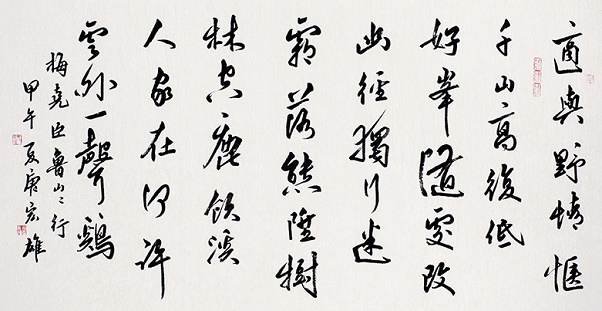 適與野情愜
千山高復低
好峯隨處改
幽徑獨行迷
霜落熊陞樹
林空鹿飲溪
人家在何許
雲外一聲鷄
梅堯臣魯山〻行
甲午夏宏雄